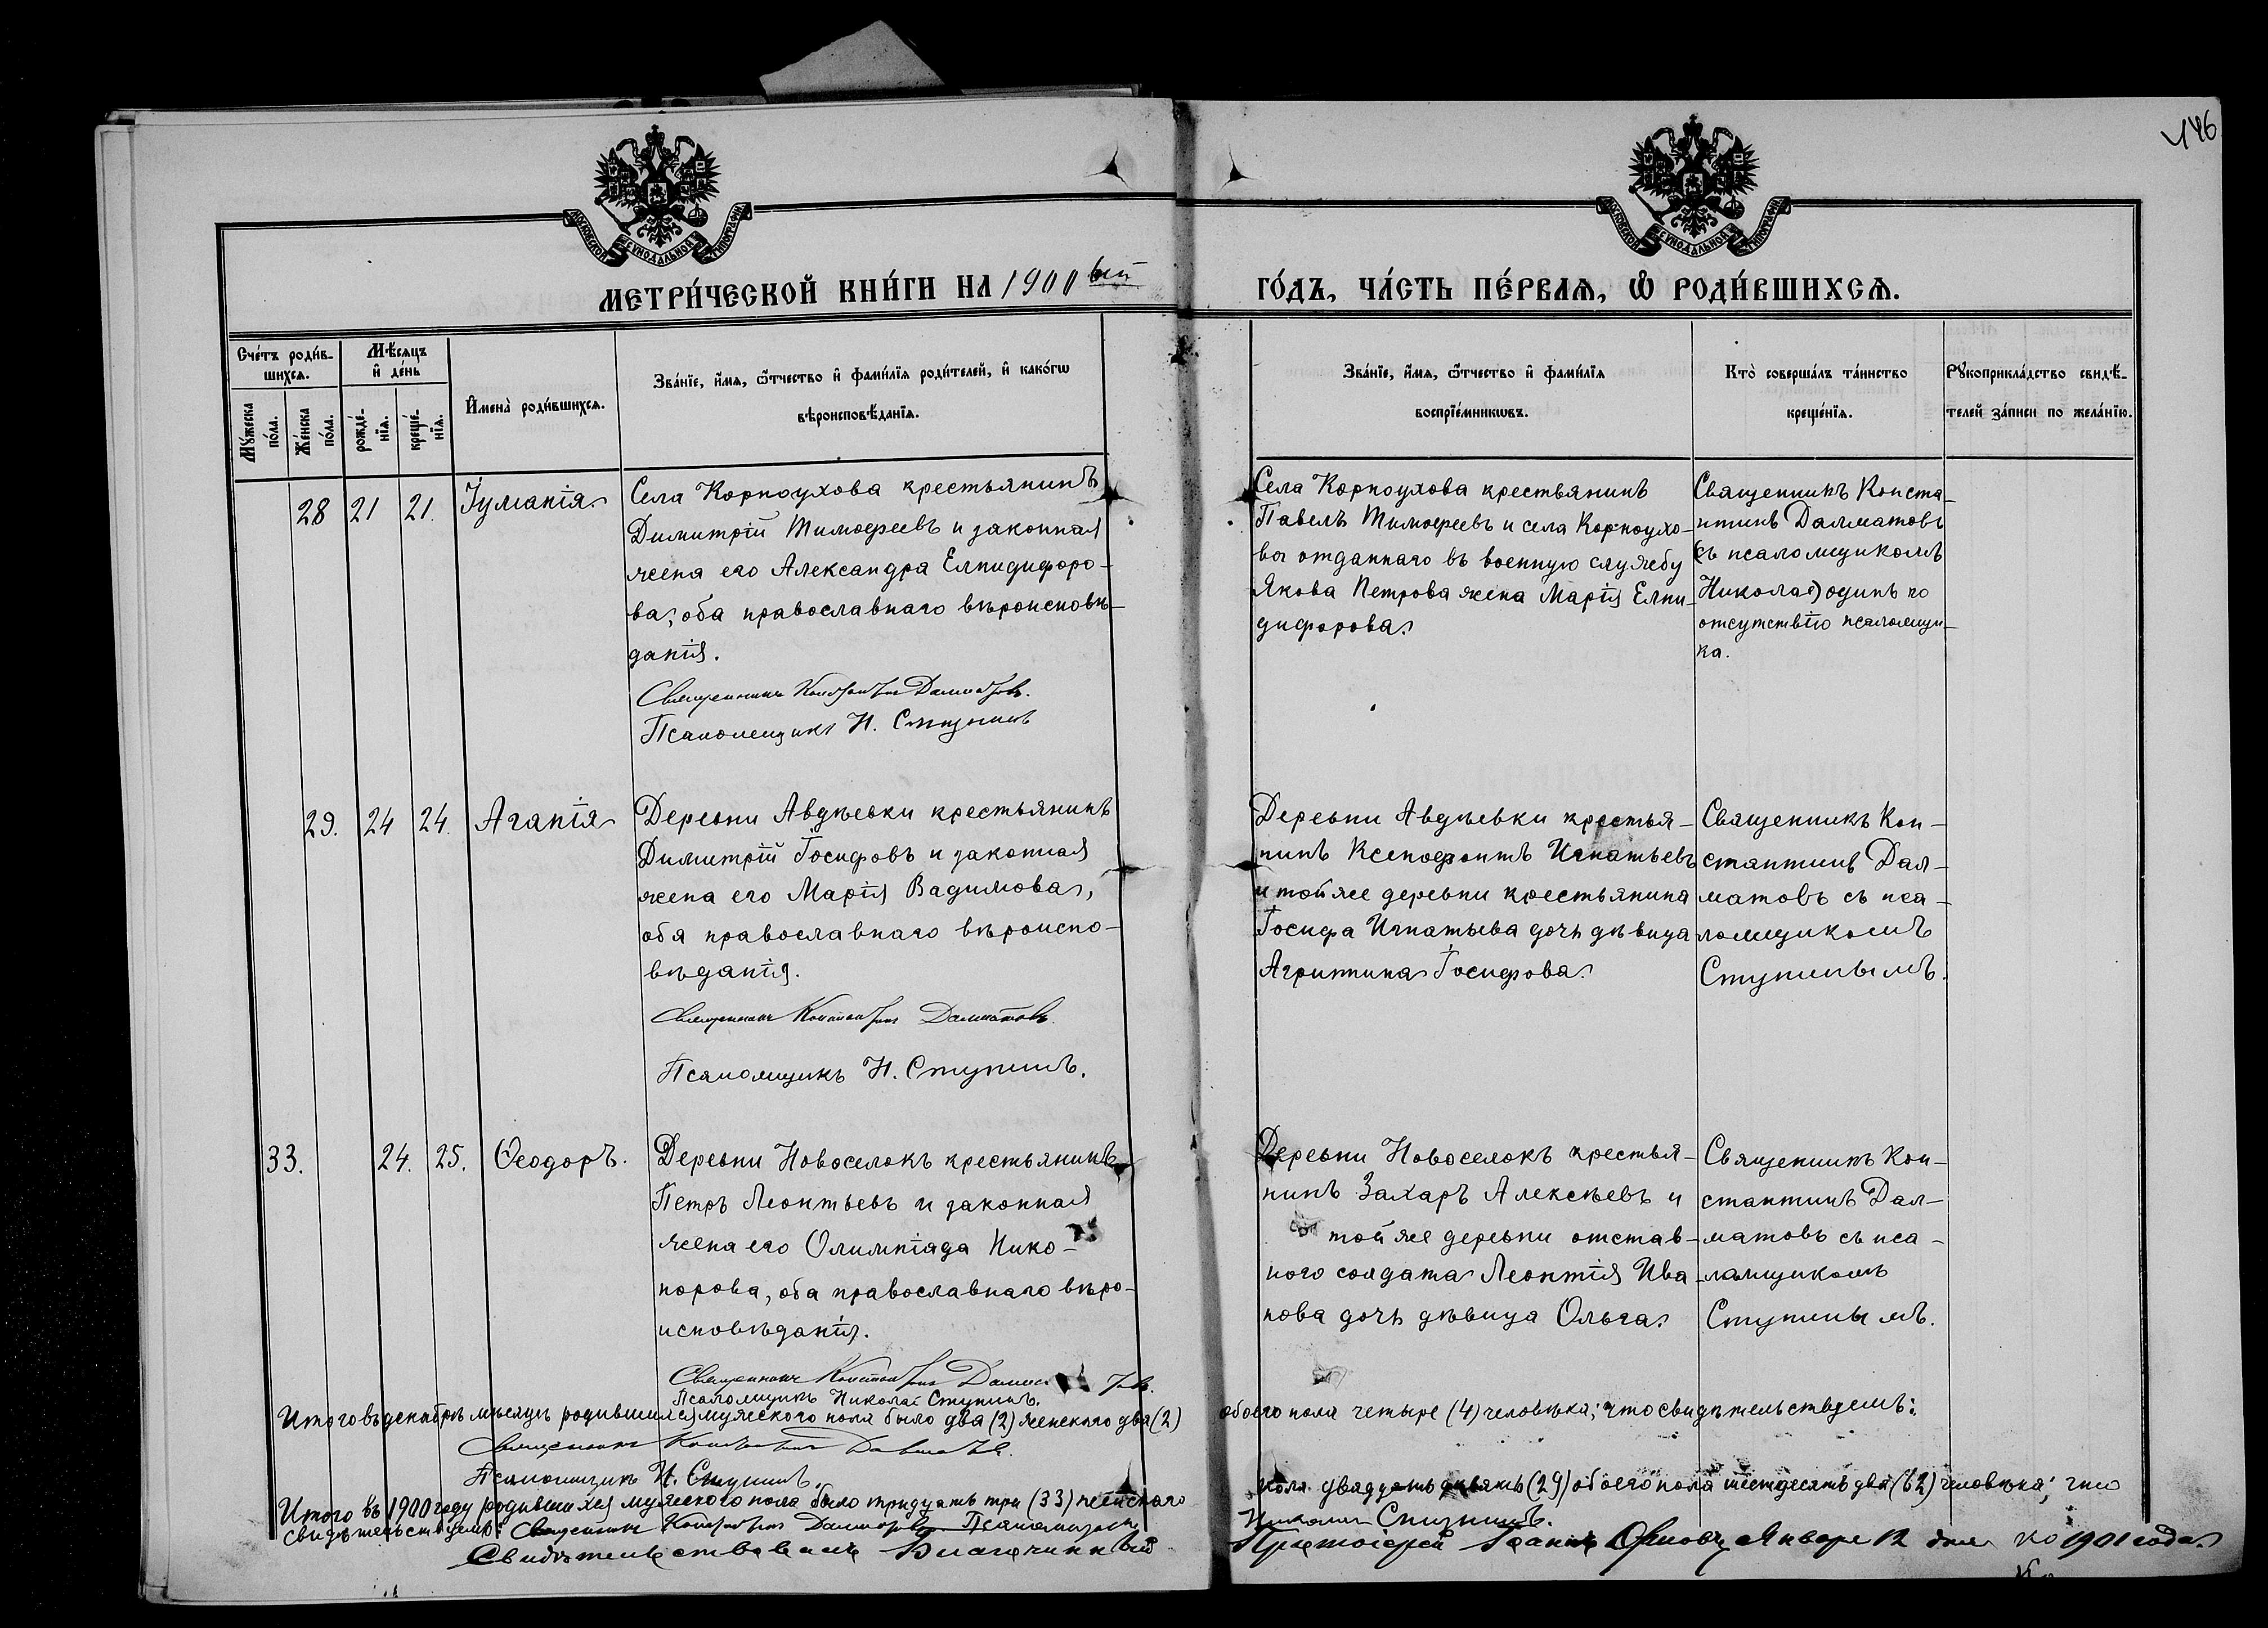 446
МОСКОВСКОЙ СѴНОДАЛЬНОЙ ТИПОГРАФІИ
МОСКОВСКОЙ СѴНОДАЛЬНОЙ ТИПОГРАФІИ
МЕТРИ́ЧЕСКОЙ КНИ́ГИ НА 1900 ый
ГО́ДЪ, ЧА́СТЬ ПЕ́РВАѦ, Ѽ РОДИ́ВШИХСѦ.
Сче́тъ роди́в-
шихсѧ.
Мꙋ́жеска по́ла.
Же́нска по́ла.
Мѣ́сѧцъ
и҆ де́нь
рожде́-
нїѧ.
креще́-
нїѧ.
И҆мена̀ роди́вшихсѧ.
Зва́нїе, и҆́мѧ, ѻ҆́тчество и҆ фами́лїѧ роди́телей, и҆ како́гѡ
вѣроисповѣ́данїѧ.
Зва́нїе, и҆́мѧ, ѻ҆́тчество и҆ фами́лїѧ
воспрїе́мникѡвъ.
Кто̀ соверша́лъ та́инство
креще́нїѧ.
Рꙋкоприкла́дство свидѣ́-
телей за́писи по жела́нїю.
28 21 21. Іуманія.
Села Корноухова крестьянинъ
Димитрій Тимофеевъ и законная
жена его Александра Елпидифоро-
ва; оба православнаго вѣроисповѣ-
данія.
Священникъ Константинъ Далматовъ.
Псаломщикъ Н. Ступинъ
Села Корноухова крестьянинъ
Павелъ Тимофеевъ и села Корноухо-
ва отданнаго въ военную службу
Якова Петрова жена Марія Елпи-
дифорова.
Священникъ Конста-
нтинъ Далматовъ
(съ псаломщикомъ
Николая) одинъ по
отсутствію псаломщи-
ка.
29. 24 24. Агапія
Деревни Авдѣевки крестьянинъ
Димитрій Іосифовъ и законная
жена его Марія Вадимова,
обя православнаго вѣроиспо-
вѣданія.
Священникъ Константинъ Далматовъ.
Псаломщикъ Н. Ступинъ.
Деревни Авдѣевки крестья-
нинъ Ксенофонтъ Игнатьевъ
и той же деревни крестьянина
Іосифа Игнатьева дочь дѣвица
Агриппина Іосифова.
Священникъ Кон-
стантинъ Дал-
матовъ съ пса-
ломщикомъ
Ступинымъ.
33. 24. 25. Ѳеодоръ.
Деревни Новоселокъ крестьянинъ
Петръ Леонтьевъ и законная
жена его Олимпіада Нико-
норова, оба православнаго вѣро-
исповѣданія.
Священникъ Константинъ Далматовъ.
Псаломщикъ Николай Ступинъ.
Деревни Новоселокъ крестья-
нинъ Захаръ Алексѣевъ и
той же деревни отстав-
ного солдата Леонтія Ива-
нова дочь дѣвица Ольга.
Священникъ Кон-
стантинъ Дал-
матовъ съ пса-
ламщикомъ
Ступинымъ.
Итого въ декабрѣ мѣсяцѣ родившихся мужескаго пола было два (2) женскаго два (2)
обоего пола четыре (4) человѣка; что свидѣтельствуемъ:
Священникъ Константинъ Далматовъ.
Псаломщикъ Н. Ступинъ.
Итого въ 1900 году родившихся мужескаго пола было тридцать три (33) женскаго
пола двадцать девять (29) обоего пола шестдесятъ два (62) человѣка; что
свидѣтельствуемъ: Священникъ Константинъ Далматовъ Псаломщикъ
Николай Ступинъ.
Свидѣтельствовалъ Благочинный
Протоіерей Іоаннъ Орловъ Января 12 дня 1901 года.